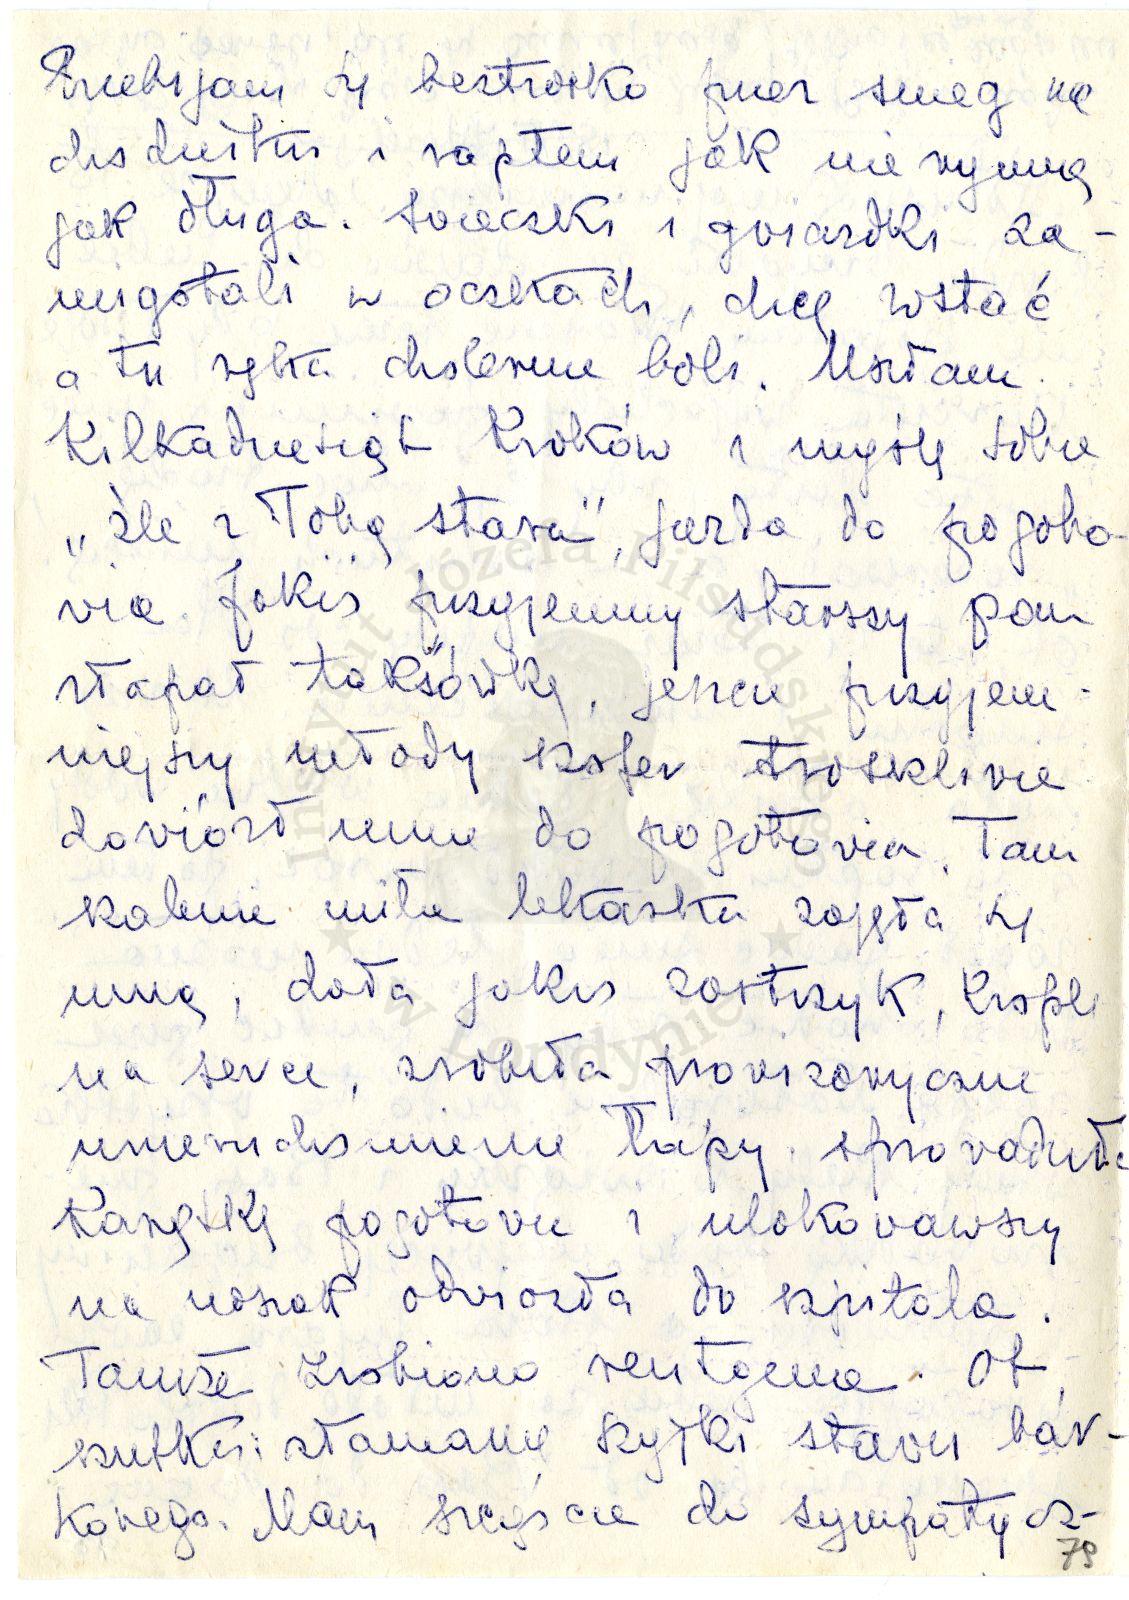 Przebijam się beztrosko przez śnieg na
chodniku i raptem jak nie rymnę
jak długa. Świeczki i gwiazdki za-
migotali w oczkach, chcę wstać
a tu ręka cholernie boli. Uszłam
kilkadziesiąt kroków i myślę sobie
„źle z Tobą stara", jazda do pogoto-
wia. Jakiś przyjemny starszy pan
złapał taksówkę, jeszcze przyjem-
niejszy młody szofer troskliwie
dowiózł mnie do pogotowia. Tam
szalenie miła lekarka zajęła się
mną, dała jakiś zastrzyk, krople
na serce, zrobiła prowizoryczne
unieruchomienie łapy, sprowadziła
karetkę pogotowia i ulokowawszy
na noszak odwiozła do szpitala.
Tamże zrobiono rentgena. Ot,
skutki: złamanie szyjki stawu bar-
kowego. Mam szczęście do sympatycz-
79
Instytut Józefa Piłsudskiego
w Londynie